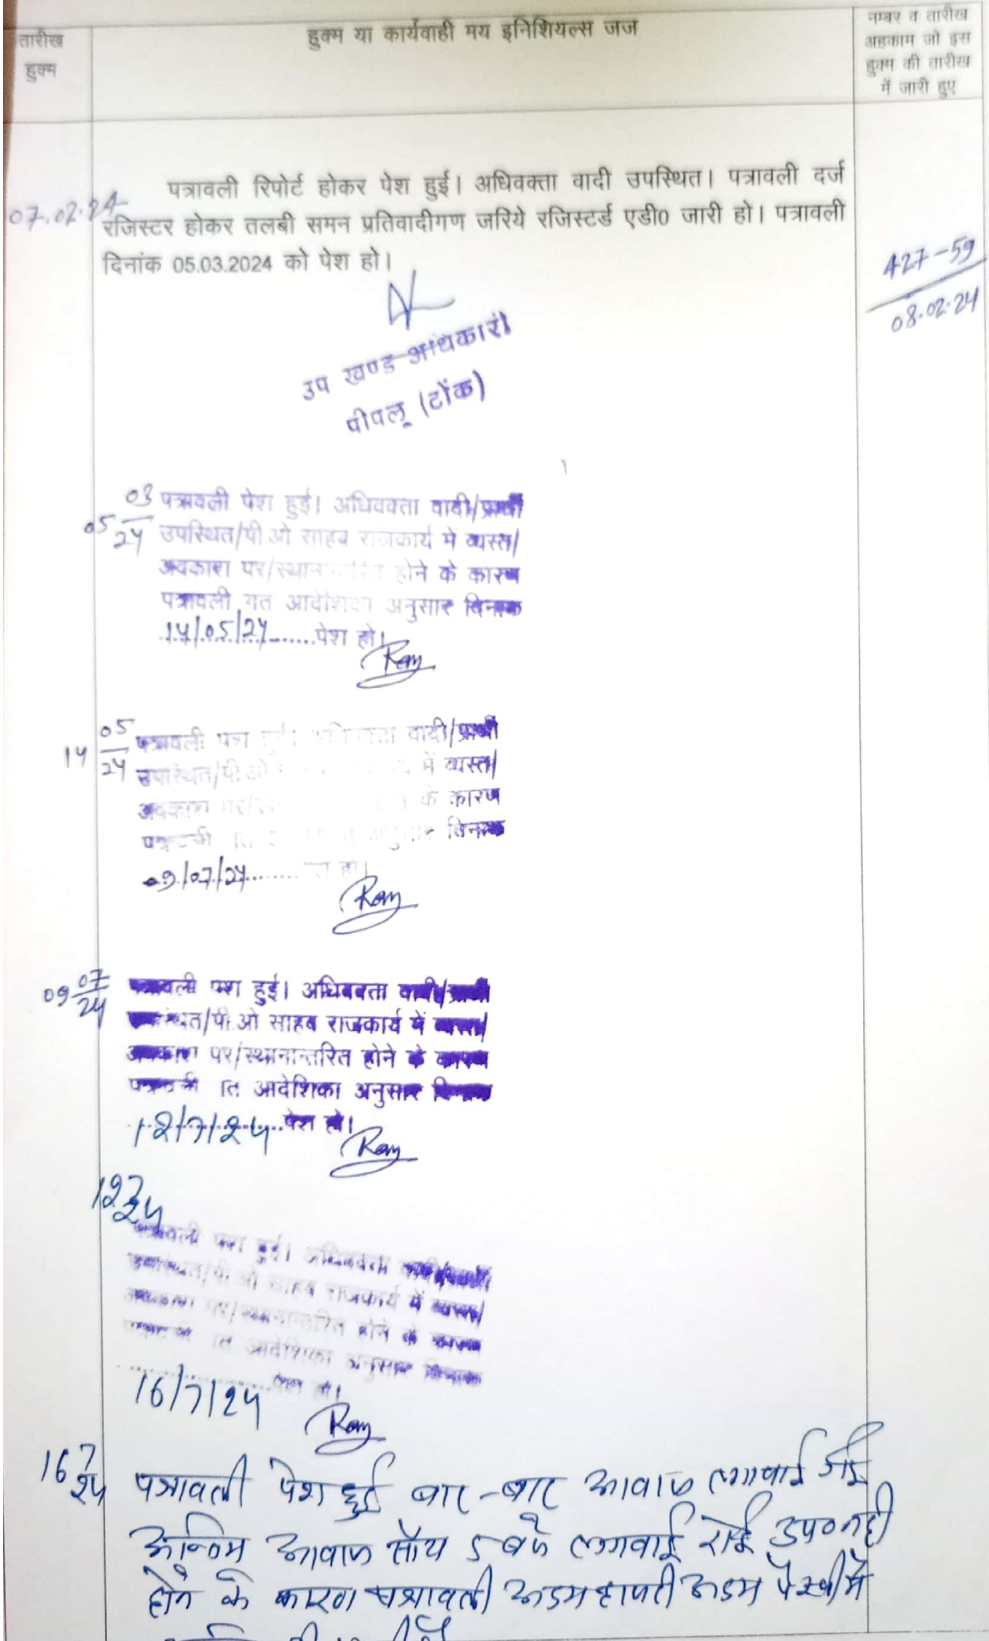 तारीख
हुक्म
हुक्म या कार्यवाही मय इनिशियल्स जज
नम्बर व तारीख
अहकाम जो इस
हुक्म की तारीख
में जारी हुए
07.02.24
पत्रावली रिपोर्ट होकर पेश हुई। अधिवक्ता वादी उपस्थित। पत्रावली दर्ज
रजिस्टर होकर तलबी समन प्रतिवादीगण जरिये रजिस्टर्ड एडी0 जारी हो। पत्रावली
दिनांक 05.03.2024 को पेश हो।
427-59
08.02.24
उप खण्ड अधिकारी
पीपलू (टोंक)
05 03/24
पत्रावली पेश हुई। अधिवक्ता वादी/प्रार्थी
उपस्थित/पी ओ साहब राजकार्य में व्यस्त/
अवकाश पर/स्थानान्तरित होने के कारण
पत्रावली गत आदेशिका अनुसार दिनांक
14/05/24......पेश हो।
Ram
14 05/24
पत्रावली पेश वादी/प्रार्थी
उपस्थित/पी ओ में व्यस्त/
अवकाश पर के कारण
अनुसार दिनांक
09/07/24.........
Ram
09 07/24
पत्रावली पेश हुई। अधिवक्ता वादी/प्रार्थी
उपस्थित/पी ओ साहब राजकार्य में व्यस्त/
अवकाश पर/स्थानान्तरित होने के कारण
आदेशिका अनुसार दिनांक
12/7/24..पेश हो।
Ram
12 7/24
पत्रावली पेश हुई। अधिवक्ता वादी/प्रार्थी
उपस्थित/पी ओ साहब राजकार्य में व्यस्त/
अवकाश पर/स्थानान्तरित होने के कारण
आदेशिका अनुसार दिनांक
16/7/24 पेश हो।
Ram
16 7/24
पत्रावली पेश हुई बार-बार आवाज लगवाई गई
अन्तिम आवाज सॉय 5 बजे लगवाई कोई उप0 नही
होने के कारण पत्रावली अदम हाजरी अदम पैरवी में